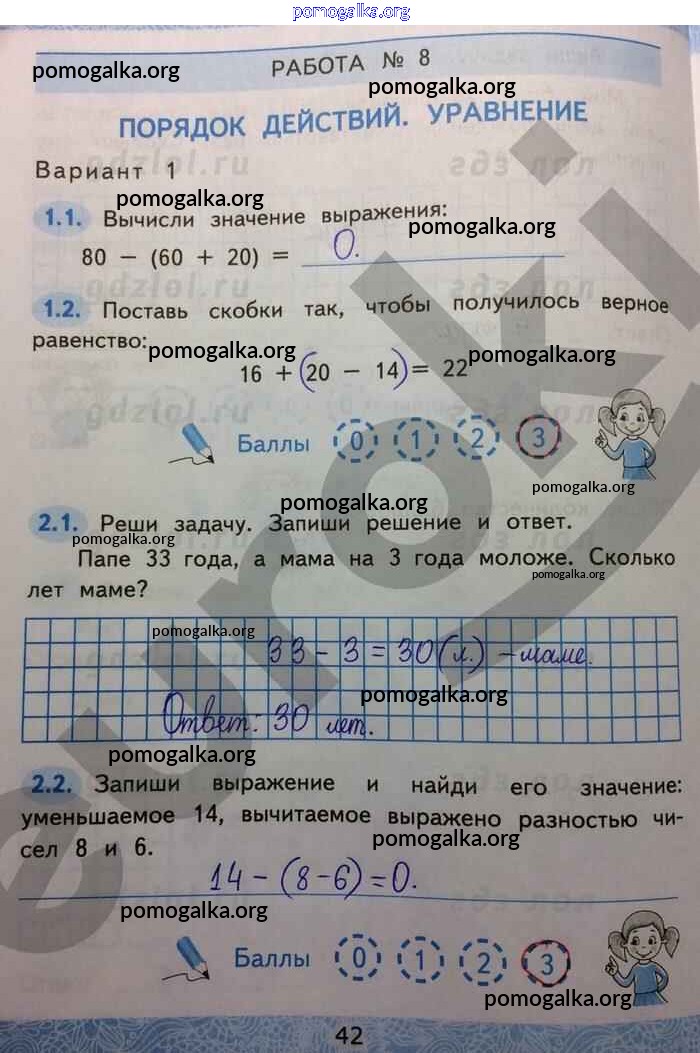 pomogalka.org
РАБОТА № 8
pomogalka.org
pomogalka.org
ПОРЯДОК ДЕЙСТВИЙ. УРАВНЕНИЕ
gdzlol.ru
Вариант 1
pomogalka.org
1.1. Вычисли значение выражения:
pomogalka.org
80 − (60 + 20) = 0.
gdzlol.ru
1.2. Поставь скобки так, чтобы получилось верное
равенство:
pomogalka.org
pomogalka.org
16 + (20 − 14) = 22
gdzlol.ru
Баллы 0 1 2 3
pomogalka.org
pomogalka.org
2.1. Реши задачу. Запиши решение и ответ.
pomogalka.org
Папе 33 года, а мама на 3 года моложе. Сколько
pomogalka.org
лет маме?
pomogalka.org
33 − 3 = 30 (л.) − маме.
pomogalka.org
Ответ: 30 лет.
pomogalka.org
2.2. Запиши выражение и найди его значение:
уменьшаемое 14, вычитаемое выражено разностью чи-
pomogalka.org
сел 8 и 6.
14 − (8 − 6) = 0.
pomogalka.org
Баллы 0 1 2 3
pomogalka.org
42
euroki